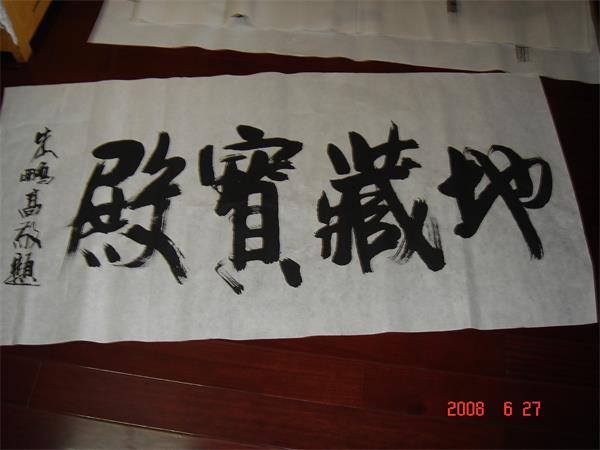 地藏寶殿
朱鵬高敬題
2008 6 27